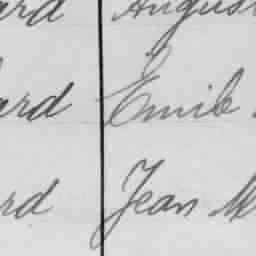 ard August
ard Emile
rd Jean M